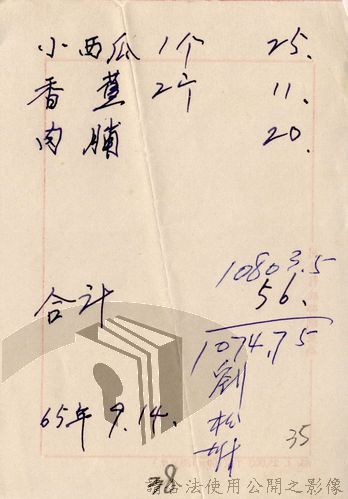 小西瓜 1个 25.
香蕉 2个 11.
肉脯 20.
10803.5
合计 56.
1074.75
劉松
65年9.14.
35
38
合法使用公開之影像